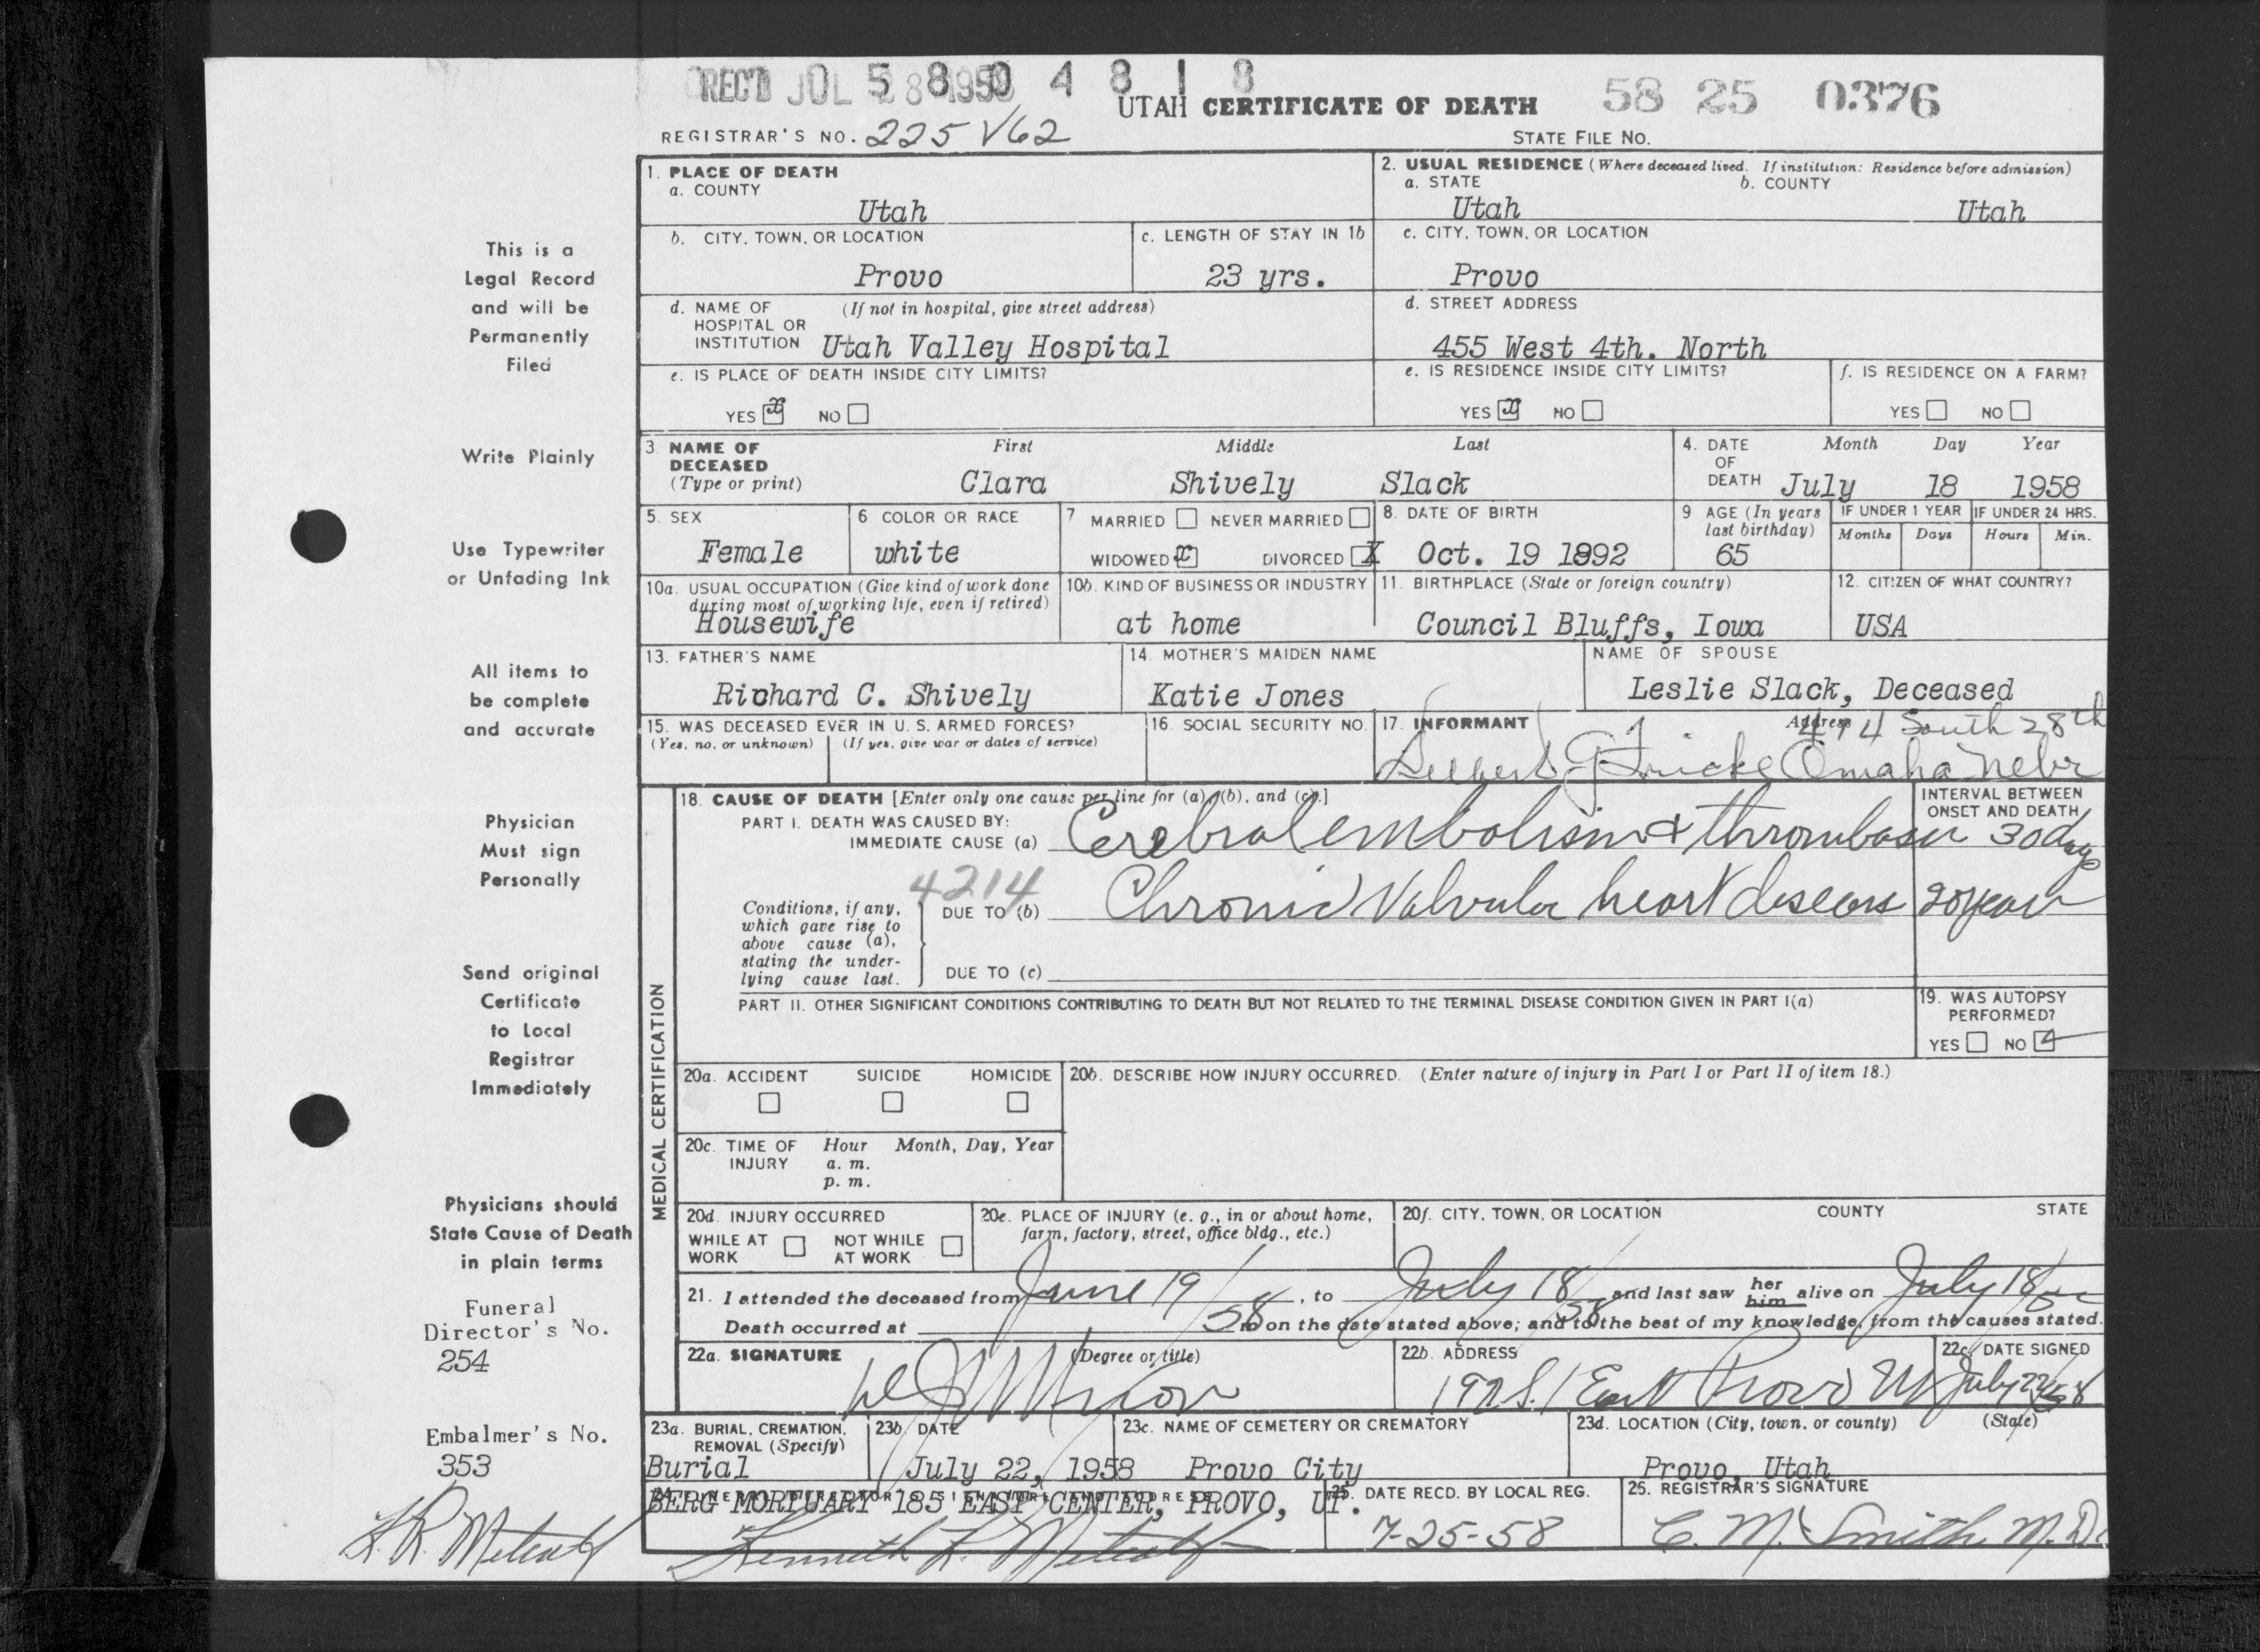 REC'D JUL 28 1958
58 04818
UTAH CERTIFICATE OF DEATH
58 25 0376
REGISTRAR'S NO. 225 V62
STATE FILE NO.
This is a
Legal Record
and will be
Permanently
Filed
Write Plainly
Use Typewriter
or Unfading Ink
All items to
be complete
and accurate
Physician
Must sign
Personally
Send original
Certificate
to Local
Registrar
Immediately
Physicians should
State Cause of Death
in plain terms
Funeral
Director's No.
254
Embalmer's No.
353
K. R. Metcalf
1. PLACE OF DEATH
a. COUNTY
Utah
2. USUAL RESIDENCE (Where deceased lived. If institution: Residence before admission)
a. STATE b. COUNTY
Utah Utah
b. CITY, TOWN, OR LOCATION
Provo
c. LENGTH OF STAY IN 1b
23 yrs.
c. CITY, TOWN, OR LOCATION
Provo
d. NAME OF (If not in hospital, give street address)
HOSPITAL OR
INSTITUTION Utah Valley Hospital
d. STREET ADDRESS
455 West 4th. North
e. IS PLACE OF DEATH INSIDE CITY LIMITS?
YES x NO
e. IS RESIDENCE INSIDE CITY LIMITS?
YES x NO
f. IS RESIDENCE ON A FARM?
YES NO
3. NAME OF First Middle Last
DECEASED
(Type or print) Clara Shively Slack
4. DATE Month Day Year
OF
DEATH July 18 1958
5. SEX
Female
6. COLOR OR RACE
white
7 MARRIED NEVER MARRIED
WIDOWED x DIVORCED X
8. DATE OF BIRTH
Oct. 19 1892
9 AGE (In years
last birthday)
65
IF UNDER 1 YEAR IF UNDER 24 HRS.
Months Days Hours Min.
10a. USUAL OCCUPATION (Give kind of work done
during most of working life, even if retired)
Housewife
10b. KIND OF BUSINESS OR INDUSTRY
at home
11. BIRTHPLACE (State or foreign country)
Council Bluffs, Iowa
12. CITIZEN OF WHAT COUNTRY?
USA
13. FATHER'S NAME
Richard C. Shively
14. MOTHER'S MAIDEN NAME
Katie Jones
NAME OF SPOUSE
Leslie Slack, Deceased
15. WAS DECEASED EVER IN U. S. ARMED FORCES?
(Yes, no, or unknown) (If yes, give war or dates of service)
16. SOCIAL SECURITY NO.
17. INFORMANT Address
South 28th
Omaha Nebr
18. CAUSE OF DEATH [Enter only one cause per line for (a), (b), and (c).]
PART I. DEATH WAS CAUSED BY:
IMMEDIATE CAUSE (a) Cerebral embolism & thrombosis
INTERVAL BETWEEN
ONSET AND DEATH
30 days
4214
Conditions, if any,
which gave rise to
above cause (a),
stating the under-
lying cause last.
DUE TO (b) Chronic Valvular heart disease 20 years
DUE TO (c)
PART II. OTHER SIGNIFICANT CONDITIONS CONTRIBUTING TO DEATH BUT NOT RELATED TO THE TERMINAL DISEASE CONDITION GIVEN IN PART I(a)
19. WAS AUTOPSY
PERFORMED?
YES NO
MEDICAL CERTIFICATION
20a. ACCIDENT SUICIDE HOMICIDE
20b. DESCRIBE HOW INJURY OCCURRED. (Enter nature of injury in Part I or Part II of item 18.)
20c. TIME OF Hour Month, Day, Year
INJURY a. m.
p. m.
20d. INJURY OCCURRED
WHILE AT NOT WHILE
WORK AT WORK
20e. PLACE OF INJURY (e. g., in or about home,
farm, factory, street, office bldg., etc.)
20f. CITY, TOWN, OR LOCATION COUNTY STATE
21. I attended the deceased from June 19/58, to July 18/58 and last saw her him alive on July 18/58
Death occurred at m on the date stated above; and to the best of my knowledge, from the causes stated.
22a. SIGNATURE (Degree or title)
22b. ADDRESS
East Provo
22c. DATE SIGNED
July 22/58
23a. BURIAL, CREMATION,
REMOVAL (Specify)
Burial
23b. DATE
July 22, 1958
23c. NAME OF CEMETERY OR CREMATORY
Provo City
23d. LOCATION (City, town, or county) (State)
Provo, Utah
24. FUNERAL DIRECTOR'S SIGNATURE AND ADDRESS
BERG MORTUARY 185 EAST CENTER, PROVO, UT.
Kenneth R. Metcalf
25. DATE RECD. BY LOCAL REG.
7-25-58
25. REGISTRAR'S SIGNATURE
C. M. Smith M. D.